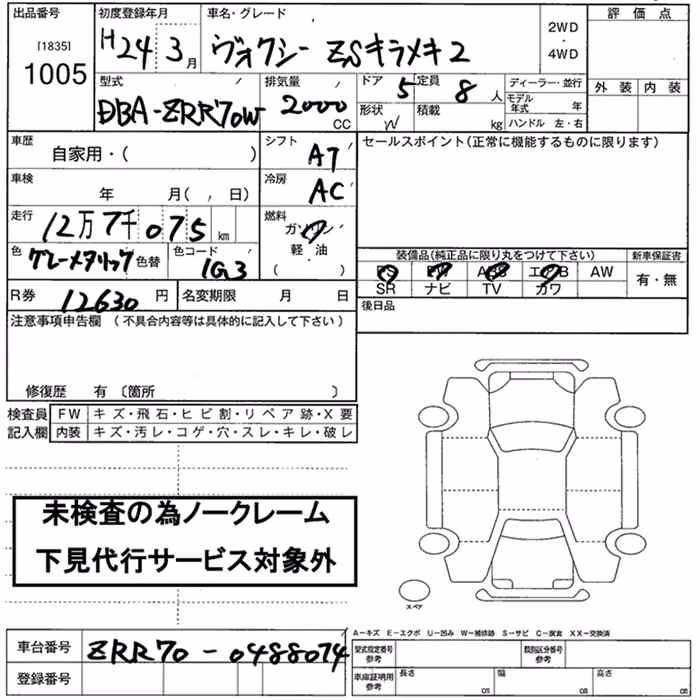 出品番号 初度登録年月 車名・グレード 評価点
[1835]
1005
H24 3月 ヴォクシー ZSキラメキ2 2WD・4WD
外装 内装
型式 排気量 ドア 5 定員 8人 ディーラー・並行
DBA-ZRR70W 2000CC 形状 W 積載 kg モデル年式 年
ハンドル 左・右
車歴 シフト セールスポイント(正常に機能するものに限ります)
自家用・( ) AT
車検 冷房
年 月( , 日) AC
走行 燃料
12万7千075km ガソリン
軽・油
( )
色 グレーメタリック 色替 色コード 1G3
装備品(純正品に限り丸をつけて下さい) 新車保証書
PS PW ABS エアB AW 有・無
SR ナビ TV カワ
R券 12630円 名変期限 月 日 後日品
注意事項申告欄(不具合内容等は具体的に記入して下さい)
修復歴 有〔箇所 〕
検査員 FW キズ・飛石・ヒビ割・リペア跡・X要
記入欄 内装 キズ・汚レ・コゲ・穴・スレ・キレ・破レ
未検査の為ノークレーム
下見代行サービス対象外
スペア
A-キズ E-エクボ U-凹み W-補修跡 S-サビ C-腐食 XX-交換済
車台番号 ZRR70-0488074
登録番号
型式指定番号 参考 類別区分番号 参考
車庫証明用 参考 長さ cm 幅 cm 高さ cm